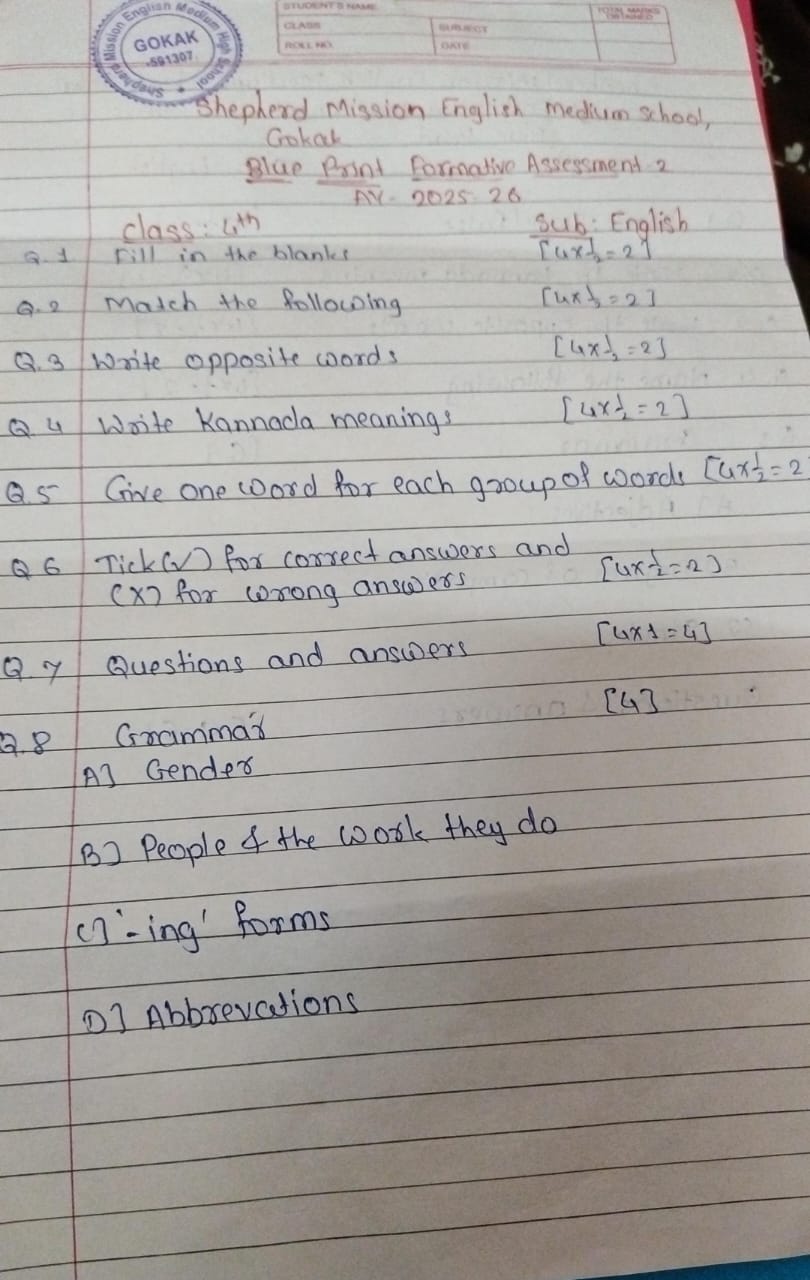 Shepherd Mission English Medium High School
GOKAK
-591307
STUDENT'S NAME
CLASS
SUBJECT
ROLL NO.
DATE
TOTAL MARKS
OBTAINED
Shepherd Mission English Medium School,
Gokak
Blue Print Formative Assessment 2
AY- 2025-26
Class: 4th Sub: English
Q.1 Fill in the blanks [4x½=2]
Q.2 Match the following [4x½=2]
Q.3 Write opposite words [4x½=2]
Q 4 Write Kannada meanings [4x½=2]
Q.5 Give one word for each group of words [4x½=2
Q 6 Tick (✓) for correct answers and
(X) for wrong answers [4x½=2]
Q.7 Questions and answers [4x1=4]
Q.8 Grammar [4]
A] Gender
B] People & the work they do
C] '-ing' forms
D] Abbrevations